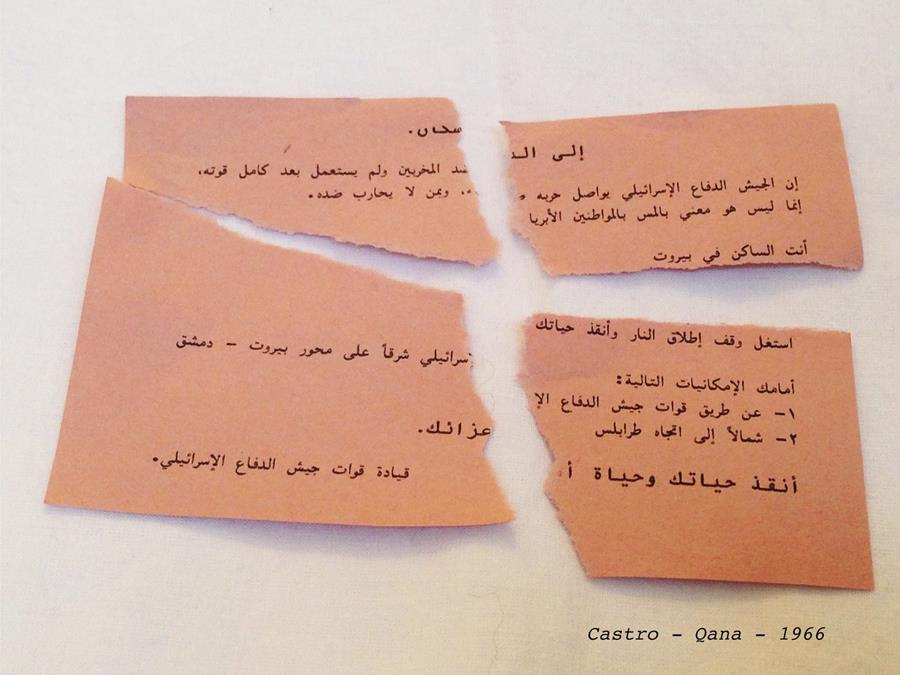 إلى السكان.
إن الجيش الدفاع الإسرائيلي يواصل حربه ضد المخربين ولم يستعمل بعد كامل قوته،
إنما ليس هو معني بالمس بالمواطنين الأبرياء، وبمن لا يحارب ضده.
أنت الساكن في بيروت
استغل وقف إطلاق النار وأنقذ حياتك
أمامك الإمكانيات التالية:
١- عن طريق قوات جيش الدفاع الإسرائيلي شرقاً على محور بيروت - دمشق
٢- شمالاً إلى اتجاه طرابلس
أنقذ حياتك وحياة أعزائك.
قيادة قوات جيش الدفاع الإسرائيلي.
Castro - Qana - 1966